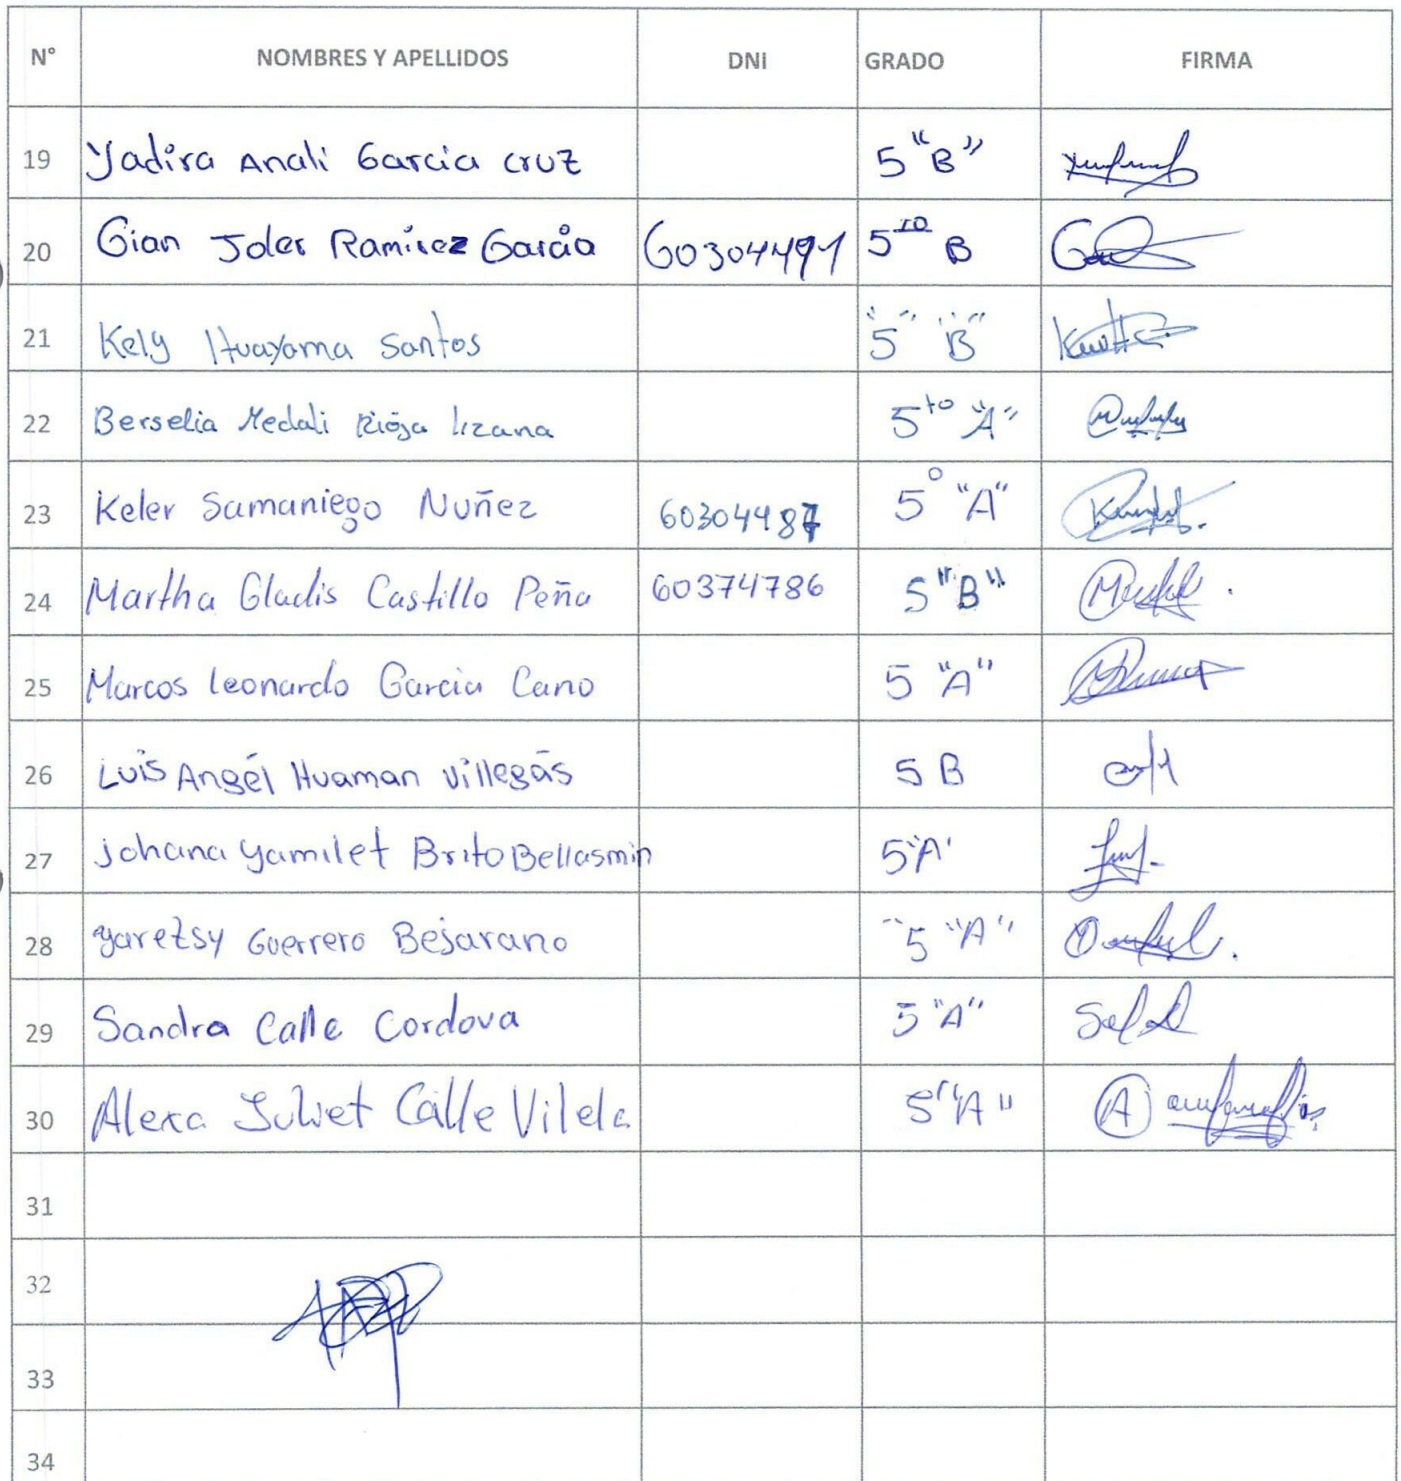 N° NOMBRES Y APELLIDOS DNI GRADO FIRMA
19 Yadira Anali Garcia cruz 5 "B"
20 Gian Joler Ramirez Garcia 60304491 5to B
21 Kely Huayama Santos "5" "B"
22 Berselia Medali Rioja lizana 5to "A"
23 Keler Samaniego Nuñez 60304487 5° "A"
24 Martha Gladis Castillo Peña 60374786 5 "B"
25 Marcos Leonardo Garcia Cano 5 "A"
26 Luis Angél Huaman villegas 5 B
27 johana yamilet Brito Bellasmin 5 'A'
28 yaretsy Guerrero Bejarano "5 "A"
29 Sandra Calle Cordova 5 "A"
30 Alexa Juliet Calle Vilela 5 "A"
31
32
33
34